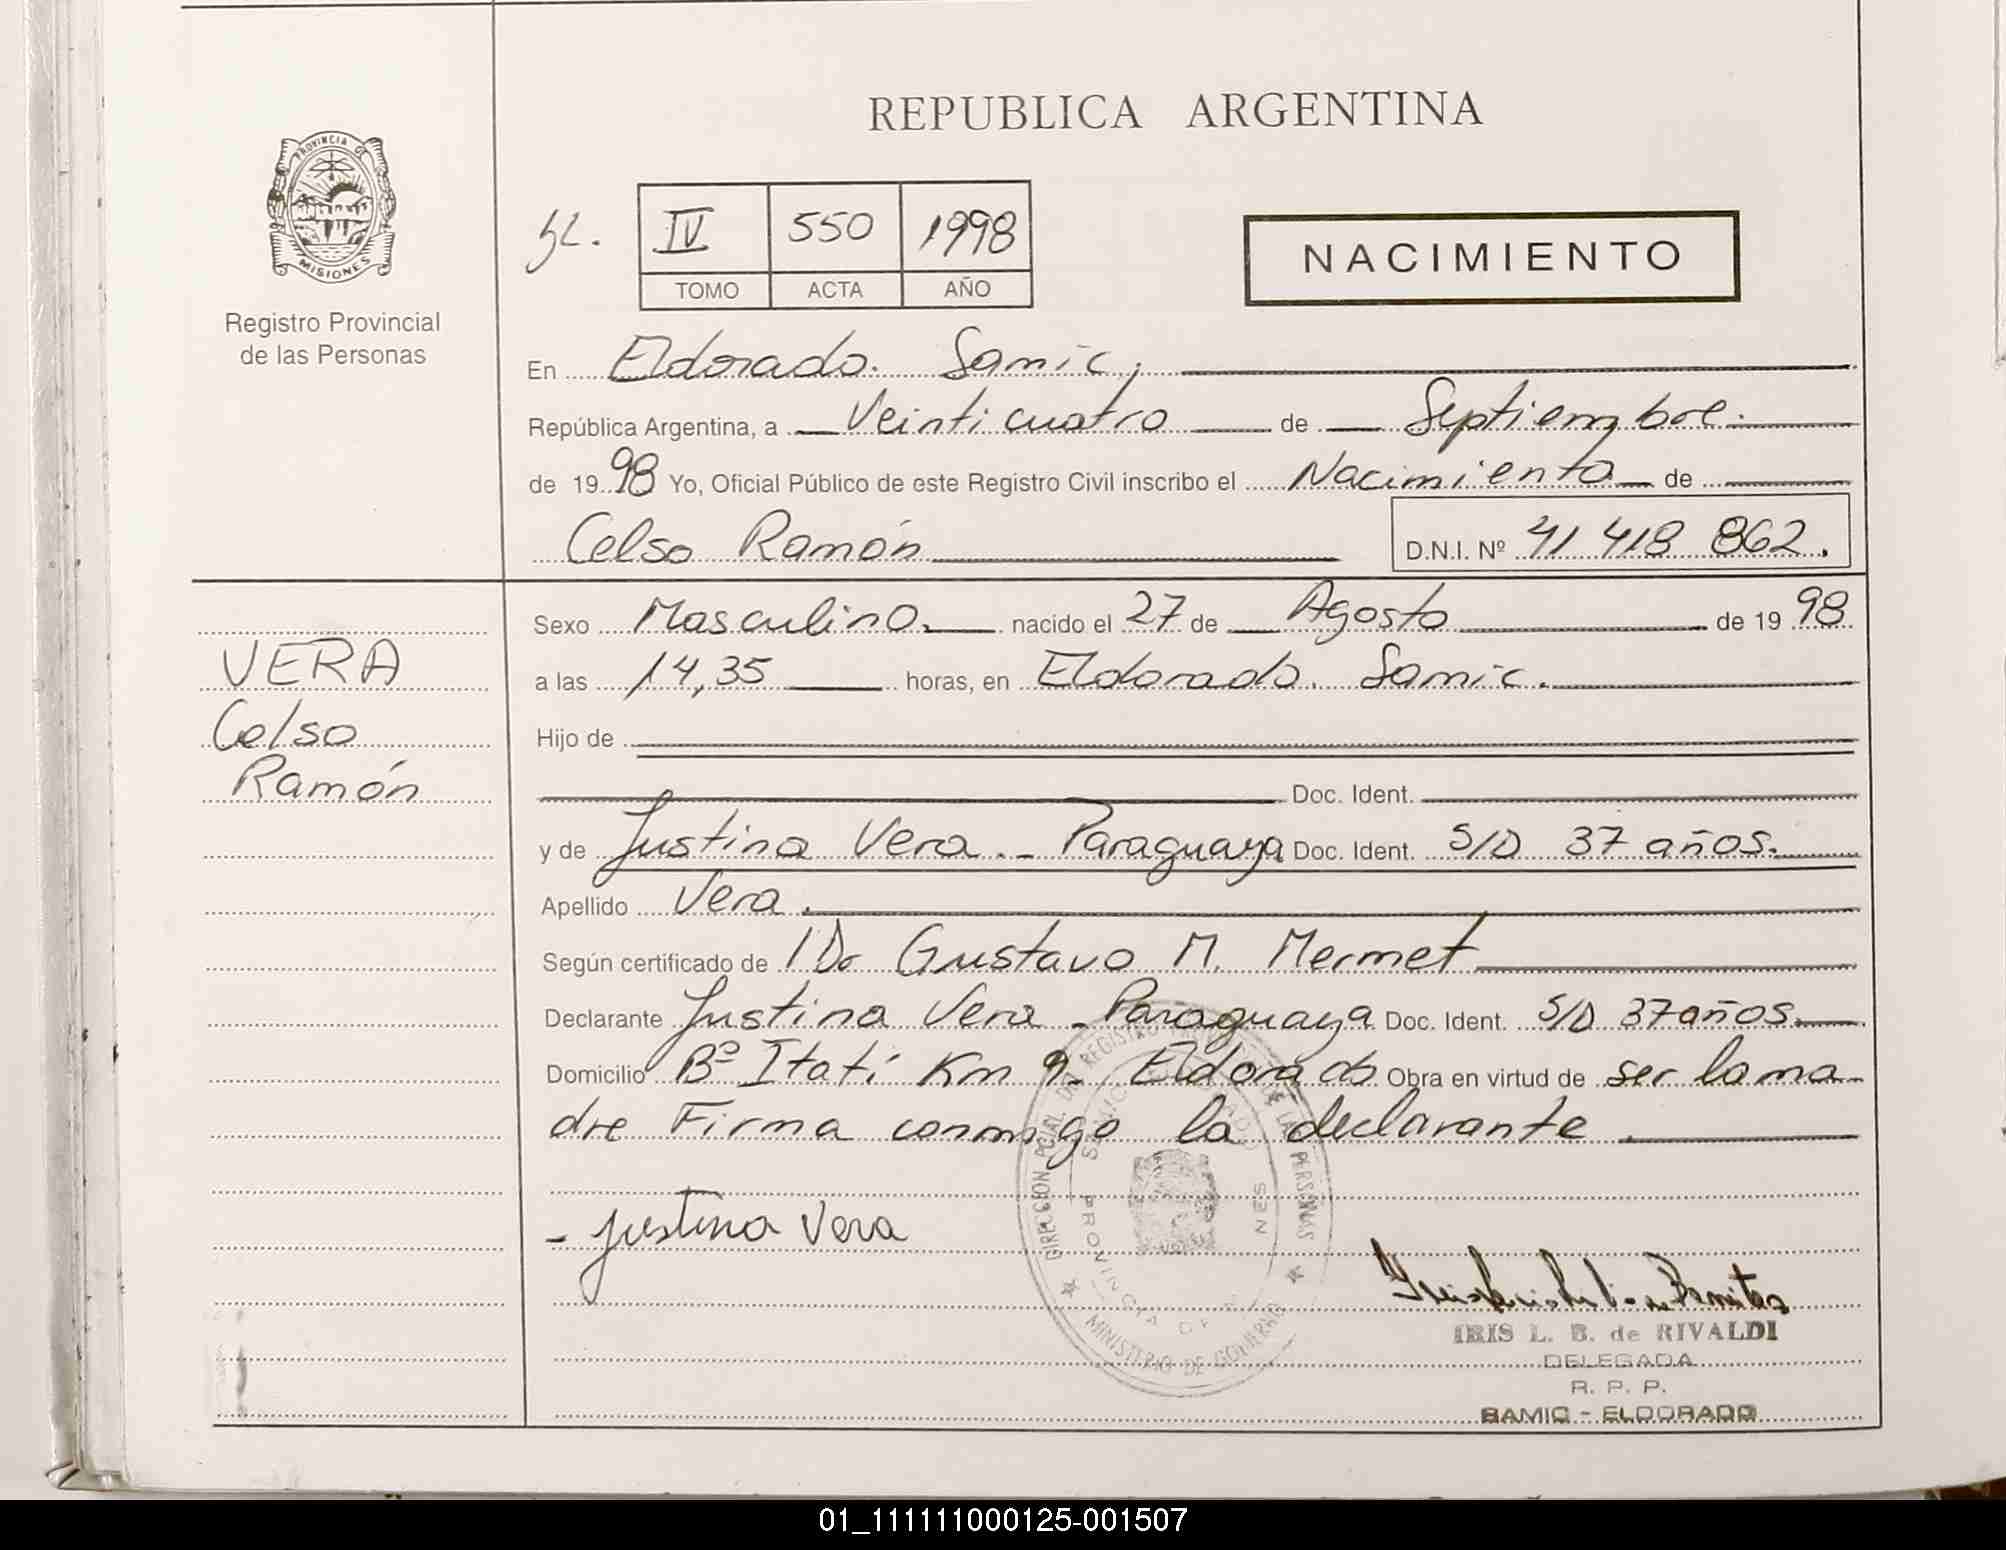 REPUBLICA ARGENTINA
PROVINCIA DE
MISIONES
Registro Provincial
de las Personas
IV 550 1998
TOMO ACTA AÑO
NACIMIENTO
En Eldorado. Samic,
República Argentina, a Veinticuatro de Septiembre.
de 1998 Yo, Oficial Público de este Registro Civil inscribo el Nacimiento de
Celso Ramón D.N.I. Nº 41 418 862.
VERA
Celso
Ramón
Sexo Masculino. nacido el 27 de Agosto de 1998
a las 14,35 horas, en Eldorado. Samic.
Hijo de
Doc. Ident.
y de Justina Vera. - Paraguaya Doc. Ident. S/D 37 años.
Apellido Vera.
Según certificado de Dr Gustavo M. Mermet
Declarante Justina Vera - Paraguaya Doc. Ident. S/D 37 años.
Domicilio Bº Itatí Km 9. Eldorado Obra en virtud de ser la ma
dre Firma conmigo la declarante
- Justina Vera
DIRECCION PCIAL. DEL REGISTRO DE LAS PERSONAS
SAMIC ELDORADO
PROVINCIA DE MISIONES
MINISTERIO DE GOBIERNO
IRIS L. B. de RIVALDI
DELEGADA
R. P. P.
SAMIC - ELDORADO
01_111111000125-001507